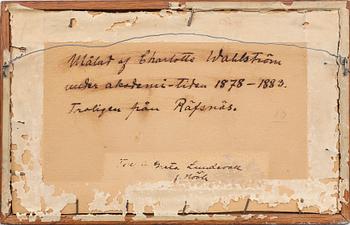 Målat af Charlotte Wahlström
under akademi-tiden 1878-1883.
Troligen från Räfsnäs.
Greta Lundevall
f. Höök